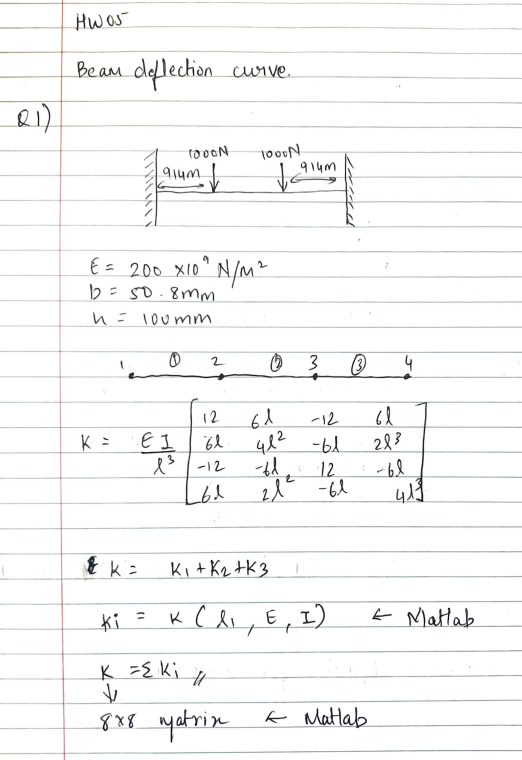 HW05
Beam deflection curve.
Q1)
1000N 1000N
914m 914m
E = 200 x10⁹ N/m²
b = 50.8mm
h = 100mm
1 ① 2 ② 3 ③ 4
K = EI/l³ [12 6l -12 6l
6l 4l² -6l 2l³
-12 -6l 12 -6l
6l 2l² -6l 4l³]
K = K1+K2+K3
Ki = K (l1, E, I) ← Matlab
K = Σ Ki //
↓
8x8 matrix ← Matlab